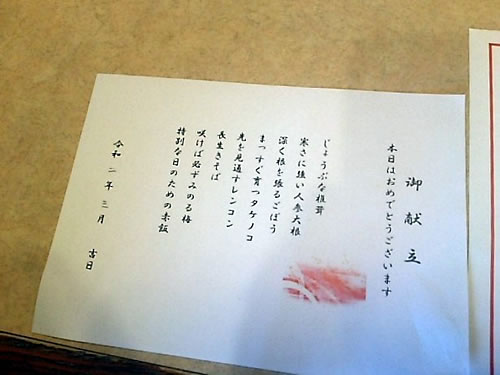 御献立
本日はおめでとうございます
じょうぶな椎茸
寒さに強い人参大根
深く根を張るごぼう
まっすぐ育つタケノコ
先を見通すレンコン
長生きそば
咲けば必ずみのる梅
特別な日のための赤飯
令和二年三月 吉日